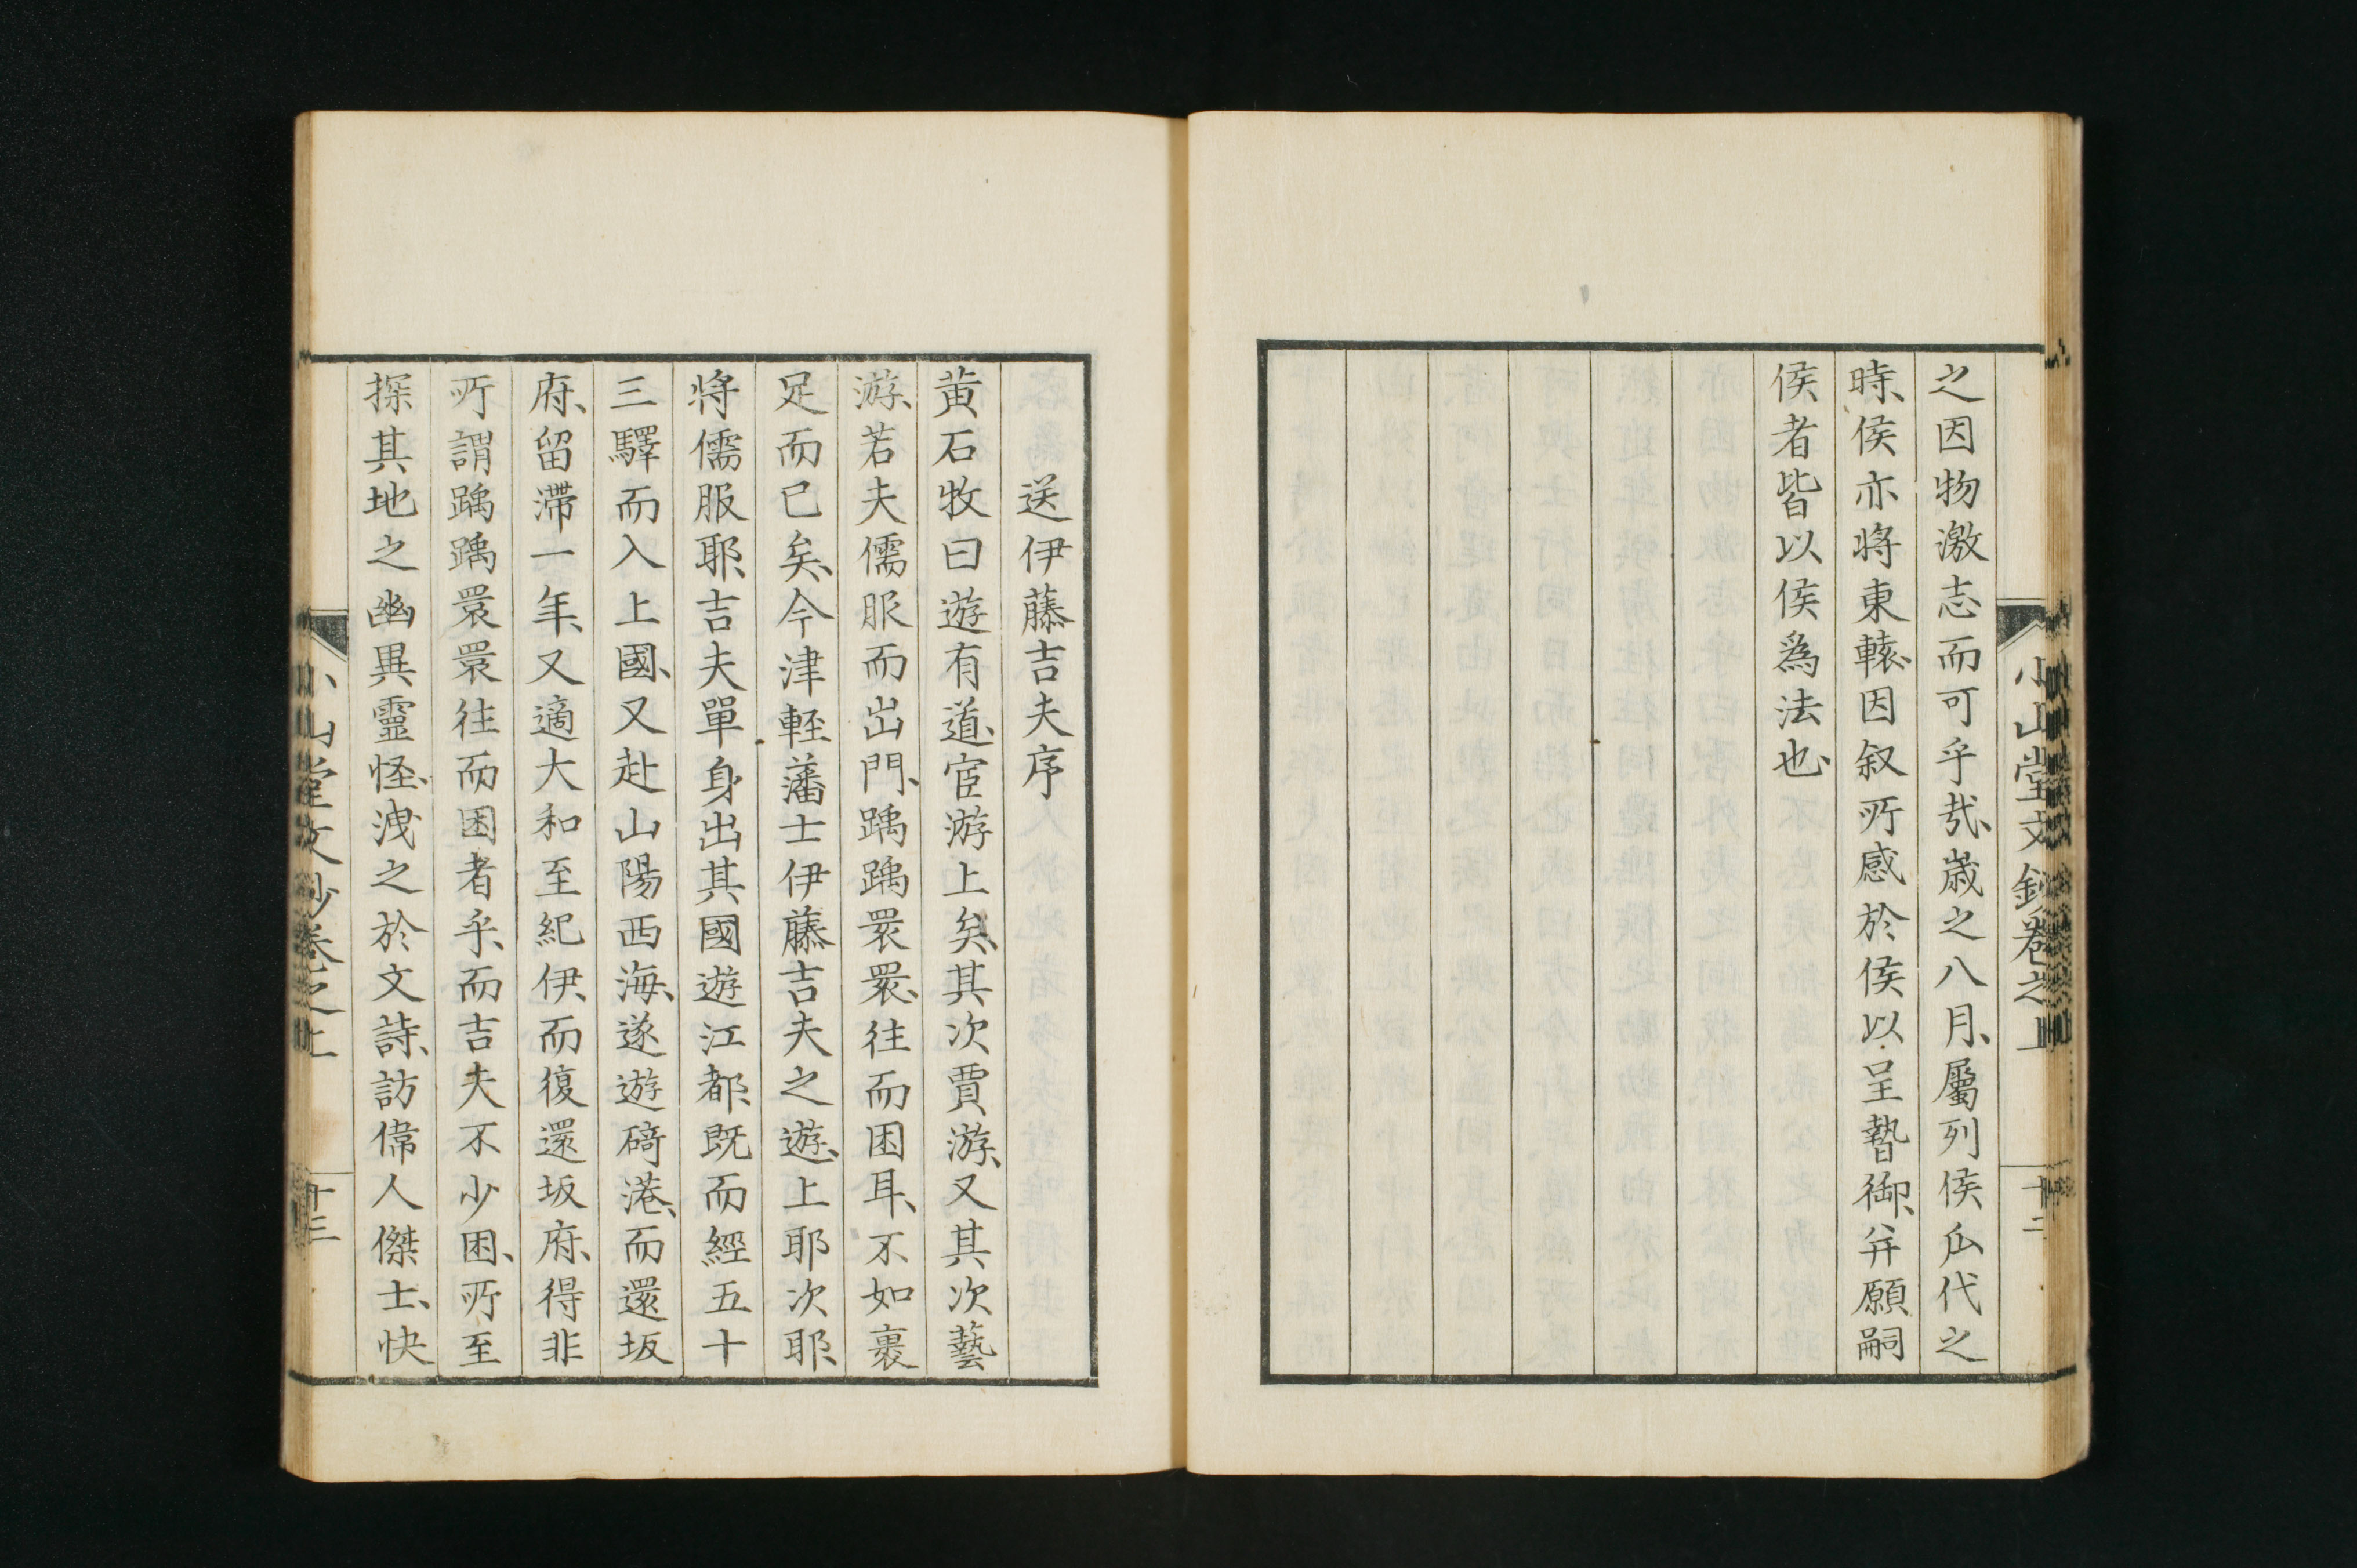 小山堂文鈔卷之上
十二
之因物激志而可乎哉、歳之八月、屬列侯瓜代之
時、侯亦將東轅、因叙所感於侯以呈暬御、并願嗣
侯者皆以侯爲法也、
送伊藤吉夫序
黄石牧曰遊有道、宦游上矣、其次賈游、又其次藝
游、若夫儒服而出門、踽踽睘睘、往而困耳、不如裹
足而已矣、今津輕藩士伊藤吉夫之遊、上耶次耶、
將儒服耶、吉夫單身出其國遊江都、既而經五十
三驛而入上國、又赴山陽西海、遂遊碕港、而還坂
府、留滯一年、又適大和至紀伊、而復還坂府、得非
所謂踽踽睘睘往而困者乎、而吉夫不少困、所至
探其地之幽異靈怪、洩之於文詩、訪偉人傑士、快
小山堂文鈔卷之上
十三